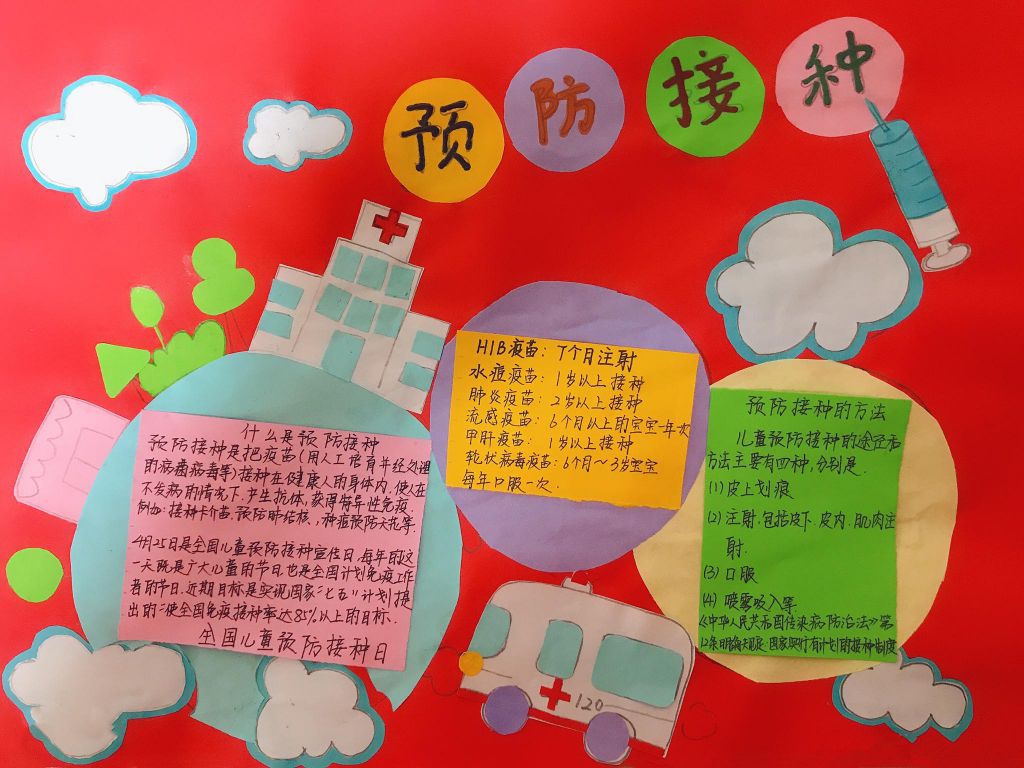 预防接种
什么是预防接种
预防接种是把疫苗(用人工培育并经处理
的病菌病毒等)接种在健康人的身体内,使人在
不发病的情况下,产生抗体,获得特异性免疫.
例如:接种卡介苗,预防肺结核,种痘预防天花等.
4月25日是全国儿童预防接种宣传日,每年的这
一天既是广大儿童的节日,也是全国计划免疫工作
者的节日.近期目标是实现国家"七五"计划提
出的"使全国免疫接种率达85%以上的目标.
全国儿童预防接种日
HIB疫苗:7个月注射
水痘疫苗:1岁以上接种
肺炎疫苗:2岁以上接种
流感疫苗:6个月以上的宝宝一年一次
甲肝疫苗:1岁以上接种
轮状病毒疫苗:6个月~3岁宝宝
每年口服一次.
预防接种的方法
儿童预防接种的途径和
方法主要有四种,分别是.
(1)皮上划痕
(2)注射.包括皮下.皮内.肌肉注
射.
(3)口服
(4)喷雾吸入等.
《中华人民共和国传染病防治法》第
12条明确规定:国家实行有计划的接种制度
120